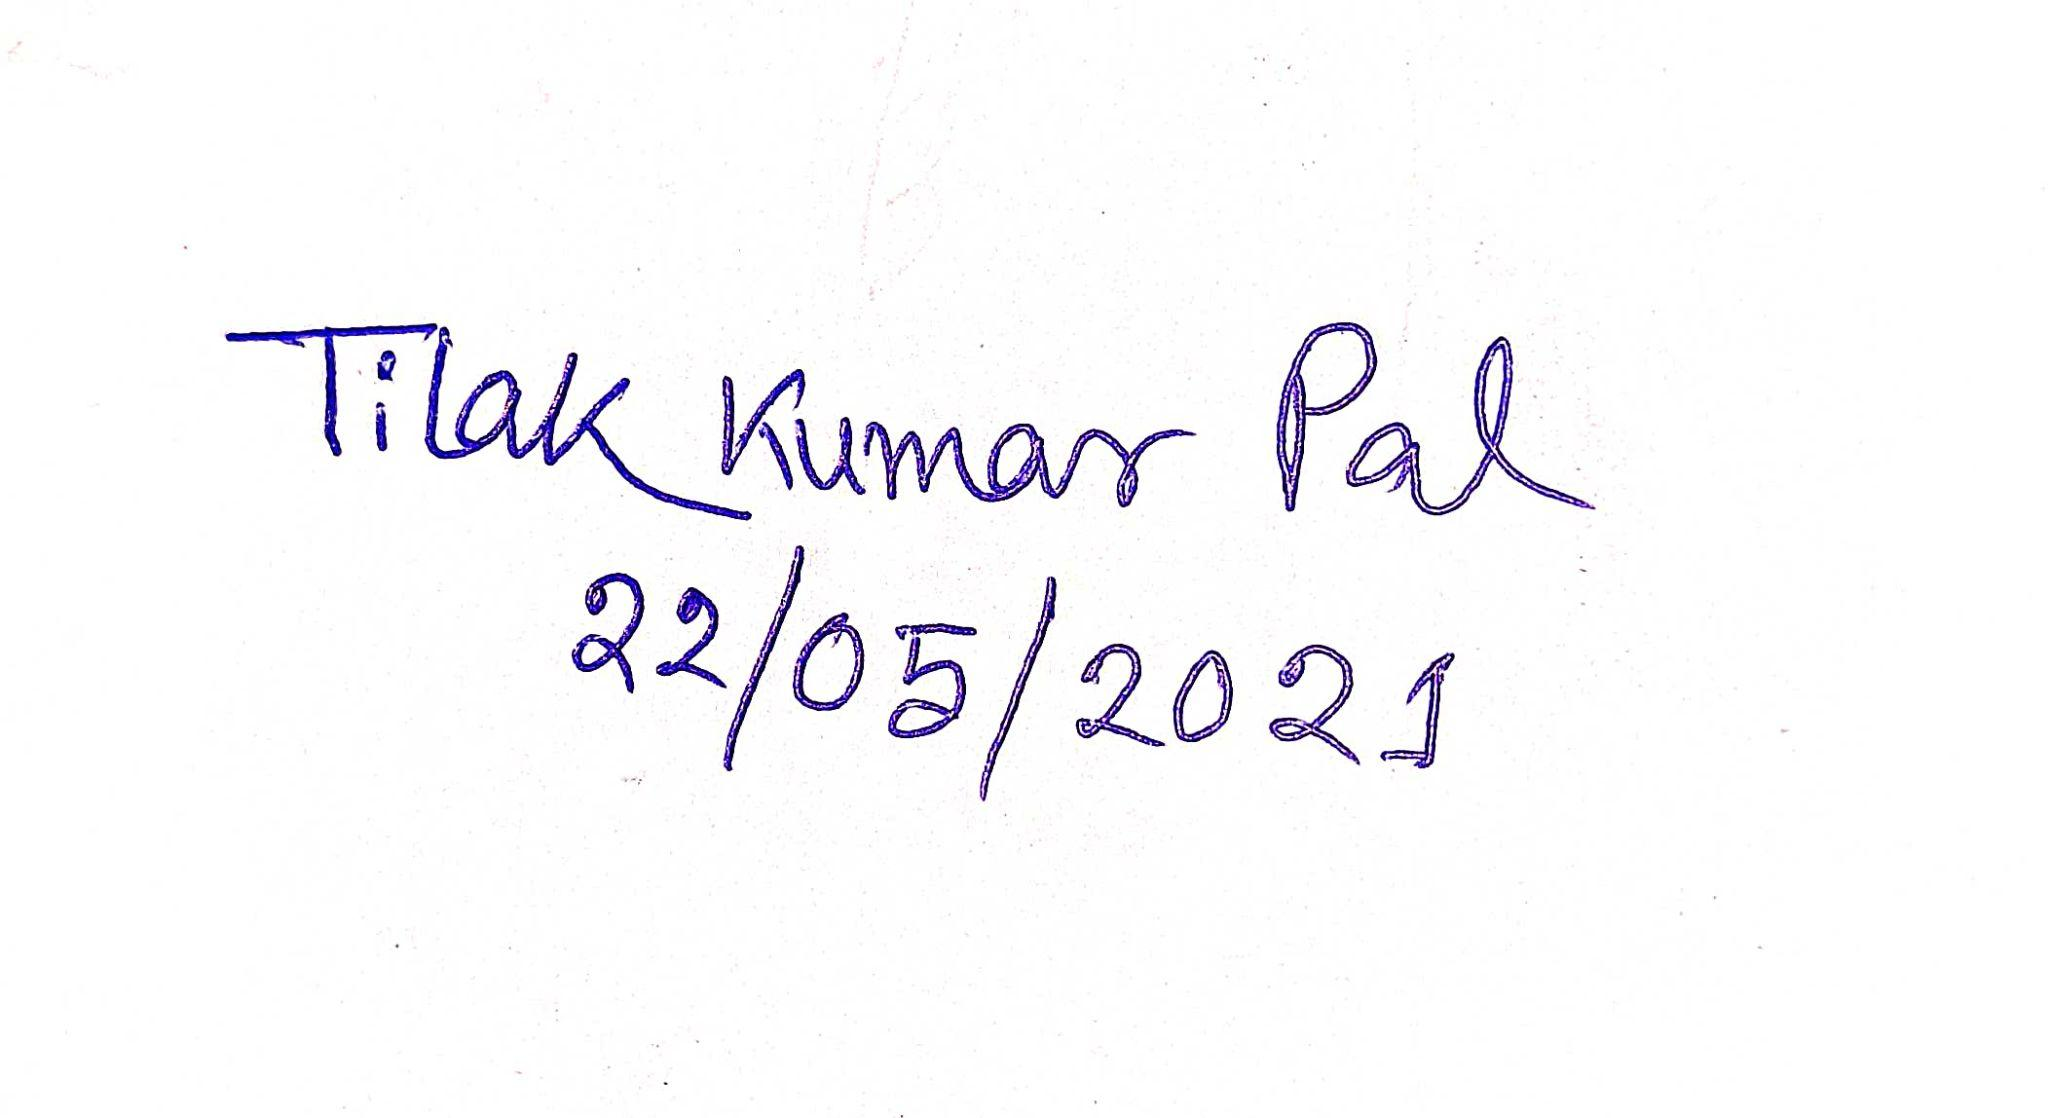 Tilak Kumar Pal
22/05/2021